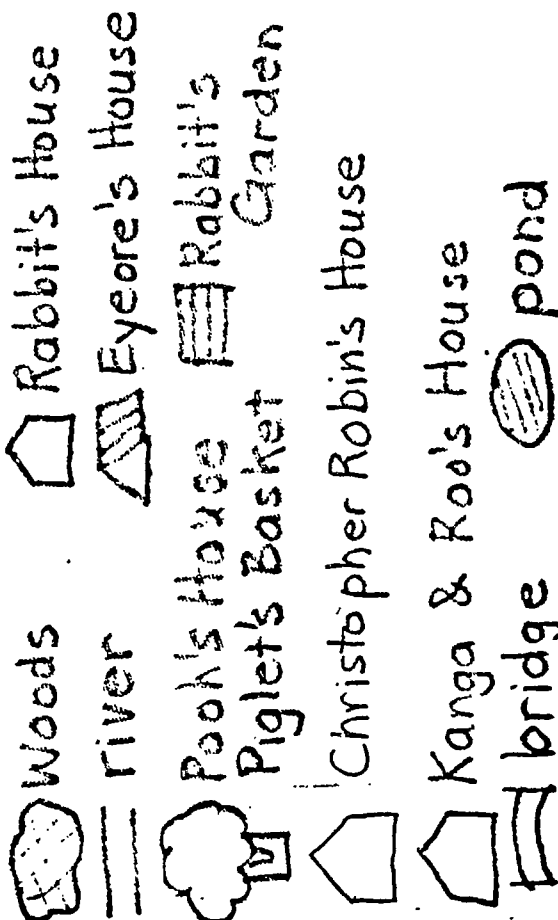 Woods
Rabbit's House
river
Eyeore's House
Pooh's House
Rabbit's
Garden
Piglet's Basket
Christopher Robin's House
Kanga & Roo's House
bridge
pond